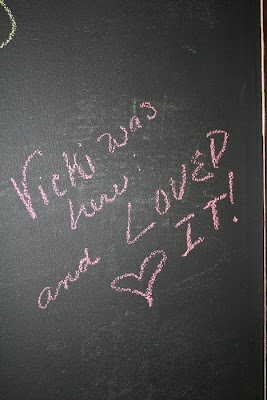 Vicki was
here
and LOVED
IT!